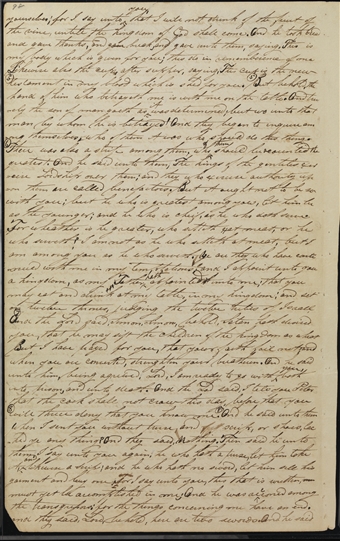 92
yourselves; for I say unto you, that I will not drink of the fruit of
the vine, until the kingdom of God shall come. And he took bread
and gave thanks, and brake and gave unto them, saying, This is
my body which is given for you; this do in remembrance of me.
Likewise also the cup, after supper, saying, This cup is the new
testament in my blood which is shed for you. But behold, the
hand of him who betrayeth me is with me on the table. And
truly the Son of man goeth as it was determined; but wo unto that
man by whom he is betrayed. And they began to enquire am
ong themselves, who of them it was who should do this thing.
There was also a strife among them, who of them should be accounted the
greatest. And he said unto them, The kings of the gentiles exer
cise lordship over them; and they who exercise authority up
on them are called benefactors. But it ought not to be so
with you; but he who is greatest among you, let him be
as the younger; and he who is chief, as he who doth serve.
For whether is he greater, who sitteth at meat, or he
who serveth? I am not as he who sitteth at meat, but I
am among you as he who serveth. Ye are they who have contin
ued with me in my temptations. And I appoint unto you
a kingdom, as my Father hath appointed unto me; that you
may eat and drink at my table, in my kingdom; and sit
on twelve thrones, judging the twelve tribes of Israel.
And the Lord said, Simon, Simon, behold, Satan hath desired
you, that he may sift the children of the kingdom as wheat.
But I have prayed for you, that your faith fail not; and
when you are converted, strengthen your brethren. And he said
unto him, being aggrieved, Lord, I am ready to go with you, both
into prison, and unto death. And the Lord said, I tell you, Peter,
that the cock shall not crow this day, before that you
will thrice deny that you know me. And he said unto them,
When I sent you without purse and scrip, or shoes, lac
ked ye any thing? And they said, Nothing. Then said he unto
them, I say unto you again, he who hath a purse, let him take
it, and likewise a scrip; and he who hath no sword, let him sell his
garment and buy one. For I say unto you, this that is written,
must yet be accomplished in me, And he was reckoned among
the transgressors; for the things concerning me have an end.
And they said, Lord, behold, here are two swords. And he said